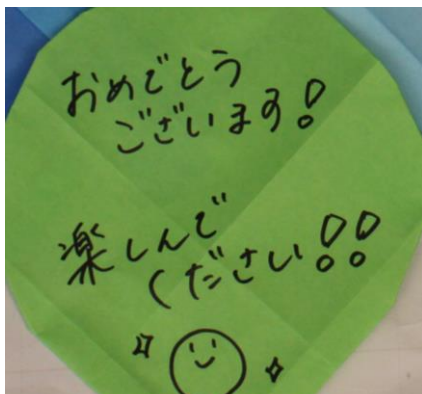 おめでとう
ございます!
楽しんで
ください!!